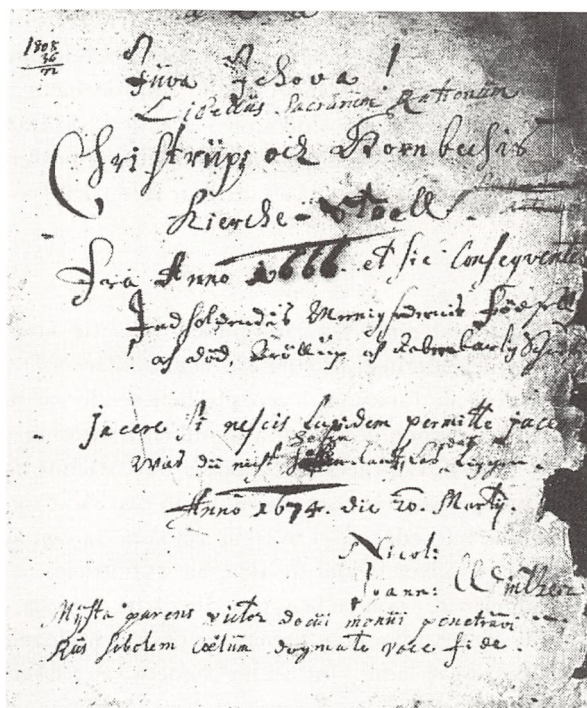 1808
36
72
Jüva Jehova!
Libellus Sacrarum Rationum
Christrüps och Hornbechs
Kierche-Stoell.
fra Anno 1666. et sic Conseqvente
Indholdendis Menigheder
och død, Tröllüp och
Jacere si nescis lapidem permitte jacere
Was dü nicht heben kanst, las liggen.
Anno 1674. die 20. Martij.
Nicol:
Joann: Winther
Mÿsta parens victor docüi monüi penetravi
Rüs sobolem Cœlüm dogmate voce fide.